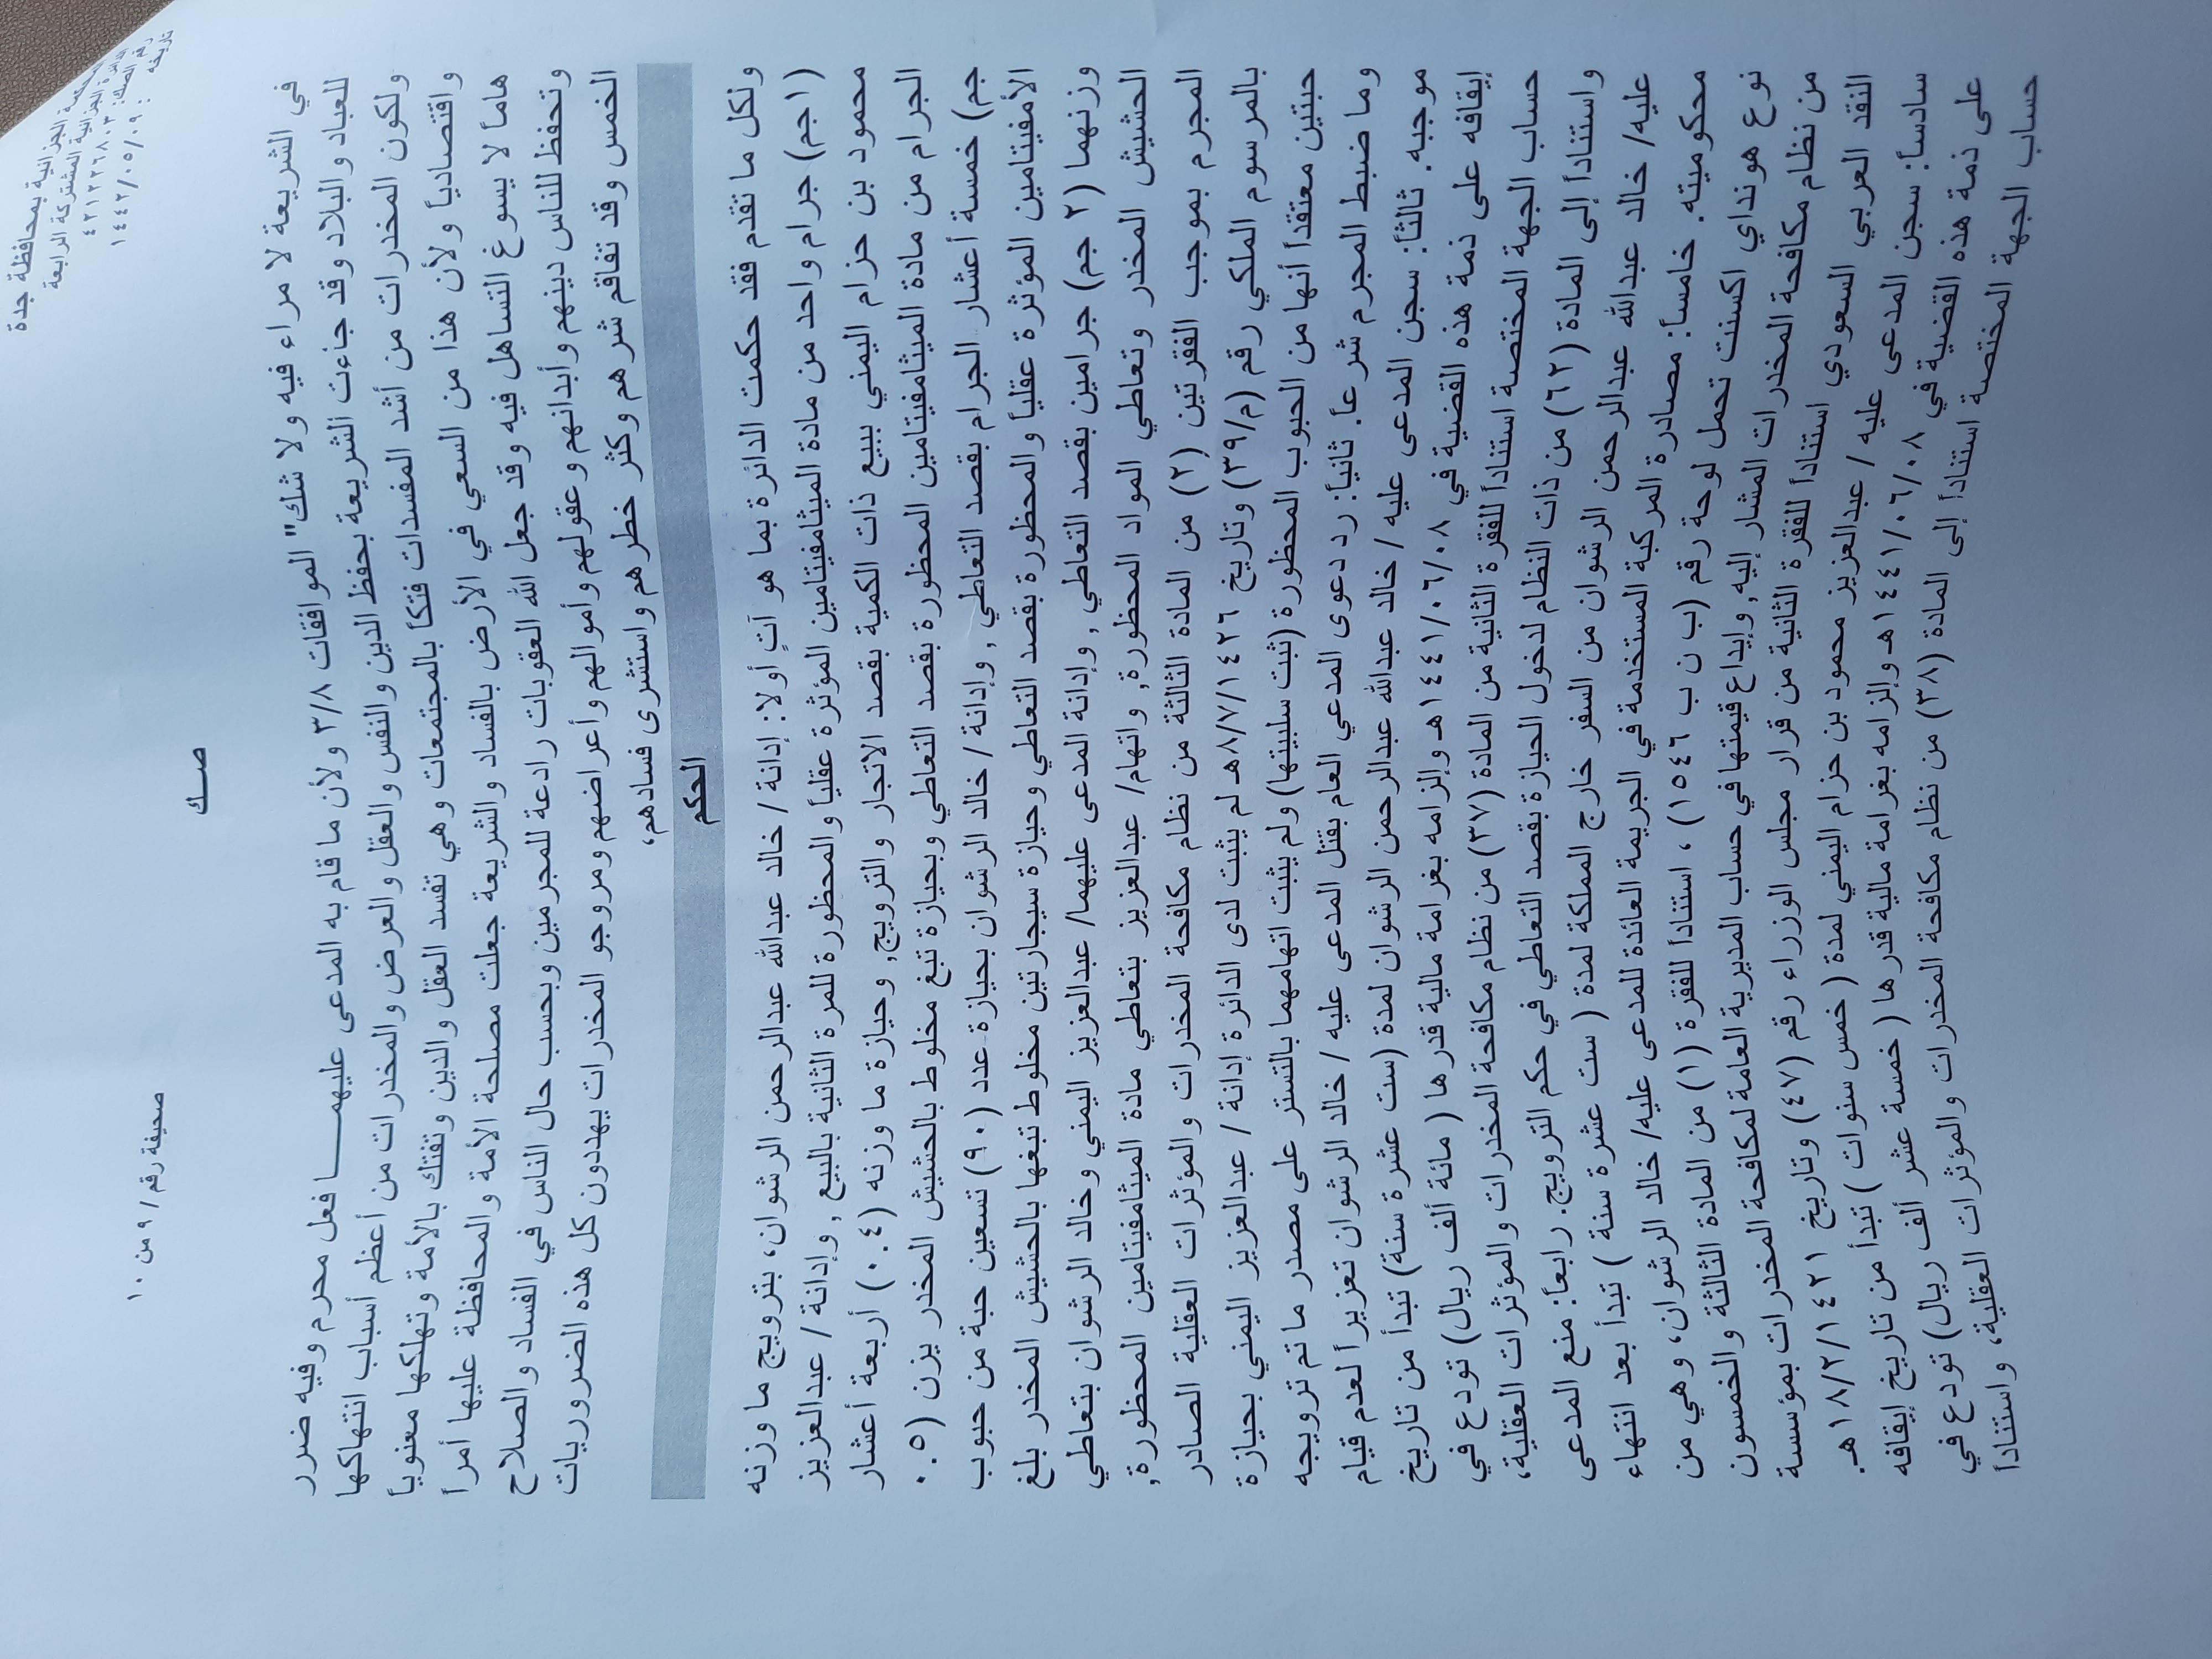 المحكمة الجزائية بمحافظة جدة
الدائرة الجزائية المشتركة الرابعة
رقم الصك: ٤٢١٢٣٦٨٠٣
تاريخه : ١٤٤٢/٠٥/٠٩
صك
صحيفة رقم/ ٩ من ١٠
في الشريعة لا مراء فيه ولا شك" الموافقات ٣/٨ ولأن ما قام به المدعى عليهما فعل محرم وفيه ضرر
للعباد والبلاد وقد جاءت الشريعة بحفظ الدين والنفس والعقل والعرض والمخدرات من أعظم أسباب انتهاكها
ولكون المخدرات من أشد المفسدات فتكاً بالمجتمعات وهي تفسد العقل والدين وتفتك بالأمة وتهلكها معنوياً
واقتصادياً ولأن هذا من السعي في الأرض بالفساد والشريعة جعلت مصلحة الأمة والمحافظة عليها أمراً
هاماً لا يسوغ التساهل فيه وقد جعل الله العقوبات رادعة للمجرمين وبحسب حال الناس في الفساد والصلاح
وتحفظ للناس دينهم وأبدانهم وعقولهم وأموالهم وأعراضهم ومروجو المخدرات يهددون كل هذه الضروريات
الخمس وقد تفاقم شرهم وكثر خطرهم واستشرى فسادهم،
الحكم
ولكل ما تقدم فقد حكمت الدائرة بما هو آتٍ أولا: إدانة / خالد عبدالله عبدالرحمن الرشوان، بترويج ما وزنه
(١جم) جرام واحد من مادة الميثامفيتامين المؤثرة عقلياً والمحظورة للمرة الثانية بالبيع , وإدانة / عبدالعزيز
محمود بن حزام اليمني ببيع ذات الكمية بقصد الاتجار والترويج, وحيازة ما وزنه (٠.٤) أربعة أعشار
الجرام من مادة الميثامفيتامين المحظورة بقصد التعاطي وبحيازة تبغ مخلوط بالحشيش المخدر يزن (٠.٥
جم) خمسة أعشار الجرام بقصد التعاطي , وإدانة / خالد الرشوان بحيازة عدد (٩٠) تسعين حبة من حبوب
الأمفيتامين المؤثرة عقلياً والمحظورة بقصد التعاطي وحيازة سيجارتين مخلوط تبغها بالحشيش المخدر بلغ
وزنهما (٢ جم) جرامين بقصد التعاطي , وإدانة المدعى عليهما/ عبدالعزيز اليمني وخالد الرشوان بتعاطي
الحشيش المخدر وتعاطي المواد المحظورة, واتهام/ عبدالعزيز بتعاطي مادة الميثامفيتامين المحظورة,
المجرم بموجب الفقرتين (٢) من المادة الثالثة من نظام مكافحة المخدرات والمؤثرات العقلية الصادر
بالمرسوم الملكي رقم (م/٣٩) وتاريخ ١٤٢٦/٧/٨هـ لم يثبت لدى الدائرة إدانة / عبدالعزيز اليمني بحيازة
حبتين معتقداً أنها من الحبوب المحظورة (ثبت سلبيتها) ولم يثبت اتهامهما بالتستر على مصدر ما تم ترويجه
وما ضبط المجرم شرعاً. ثانياً: رد دعوى المدعي العام بقتل المدعى عليه / خالد الرشوان تعزيراً لعدم قيام
موجبه. ثالثاً: سجن المدعى عليه / خالد عبدالله عبدالرحمن الرشوان لمدة (ست عشرة سنة) تبدأ من تاريخ
إيقافه على ذمة هذه القضية في ١٤٤١/٠٦/٠٨هـ وإلزامه بغرامة مالية قدرها ( مائة ألف ريال) تودع في
حساب الجهة المختصة استناداً للفقرة الثانية من المادة (٣٧) من نظام مكافحة المخدرات والمؤثرات العقلية،
واستناداً إلى المادة (٦٢) من ذات النظام لدخول الحيازة بقصد التعاطي في حكم الترويج. رابعاً: منع المدعى
عليه/ خالد عبدالله عبدالرحمن الرشوان من السفر خارج المملكة لمدة ( ست عشرة سنة ) تبدأ بعد انتهاء
محكوميته. خامساً: مصادرة المركبة المستخدمة في الجريمة العائدة للمدعى عليه/ خالد الرشوان، وهي من
نوع هونداي اكسنت تحمل لوحة رقم (ب ن ب ١٥٤٦) ، استناداً للفقرة (١) من المادة الثالثة والخمسون
من نظام مكافحة المخدرات المشار إليه, وإيداع قيمتها في حساب المديرية العامة لمكافحة المخدرات بمؤسسة
النقد العربي السعودي استناداً للفقرة الثانية من قرار مجلس الوزراء رقم (٤٧) وتاريخ ١٤٢١/٢/١٨هـ.
سادساً: سجن المدعى عليه / عبدالعزيز محمود بن حزام اليمني لمدة ( خمس سنوات ) تبدأ من تاريخ إيقافه
على ذمة هذه القضية في ١٤٤١/٠٦/٠٨هـ وإلزامه بغرامة مالية قدرها ( خمسة عشر ألف ريال) تودع في
حساب الجهة المختصة استناداً إلى المادة (٣٨) من نظام مكافحة المخدرات والمؤثرات العقلية، واستناداً